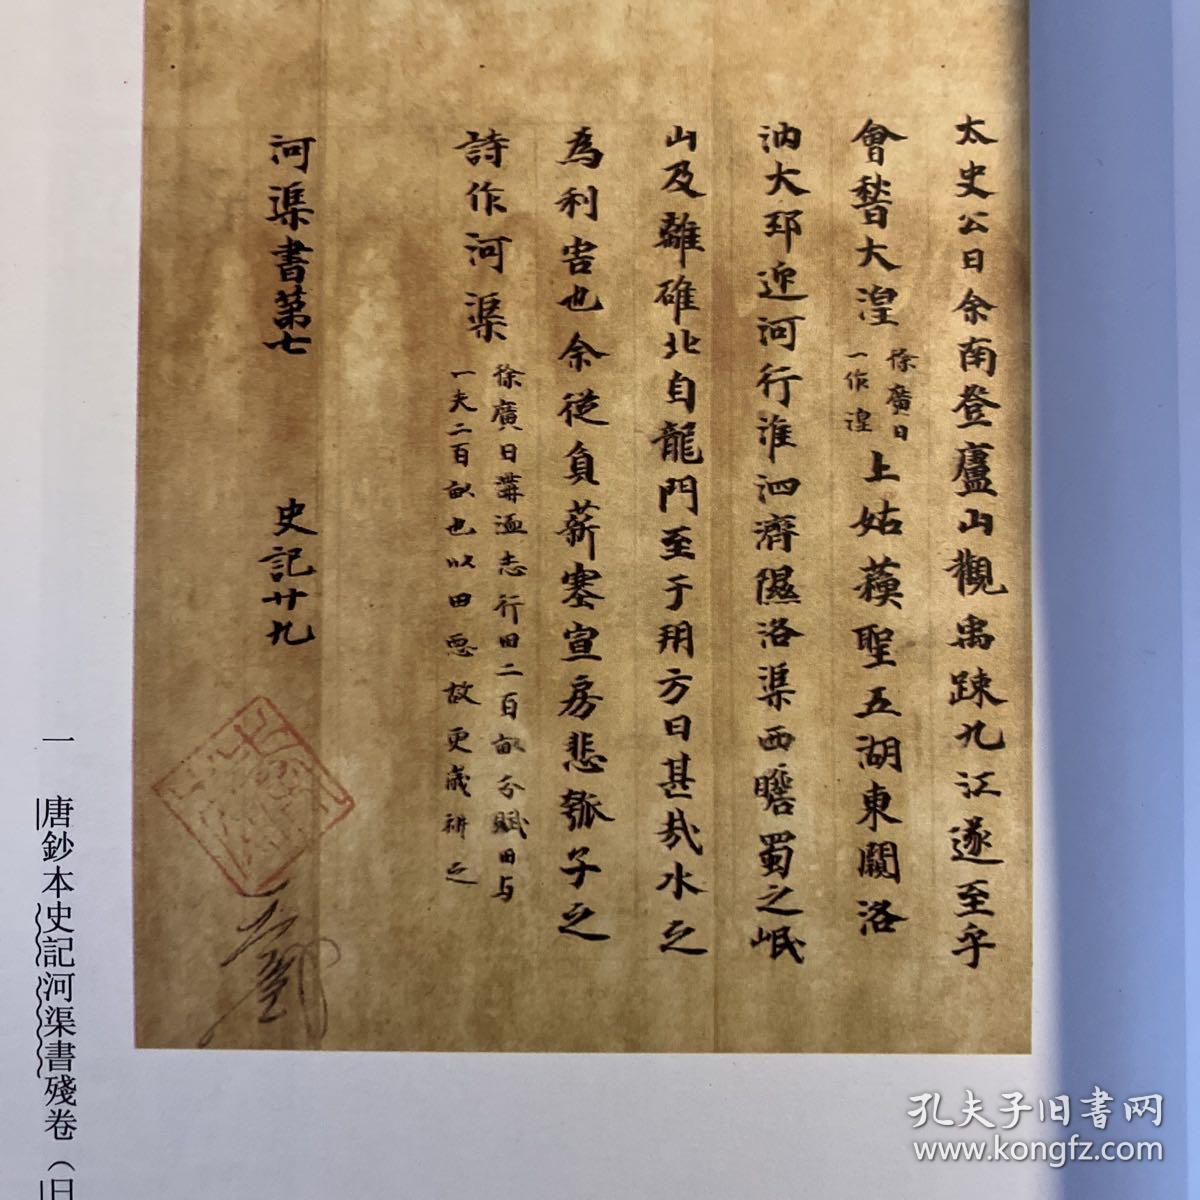 太史公曰余南登廬山觀禹踈九江遂至乎
會嵇大湟
徐廣曰
一作湟
上姑蘓聖五湖東闚洛
汭大邳迎河行淮泗濟隰洛渠西瞻蜀之岷
山及離碓北自龍門至于朔方曰甚㦲水之
為利害也余従負薪塞宣房悲瓠子之
詩作河渠
徐廣曰溝洫志行田二百畝分賦田与
一夫二百畝也以田惡故更歳耕之
河渠書第七 史記廿九
一 唐鈔本史記河渠書殘卷（日
孔夫子旧书网
www.kongfz.com